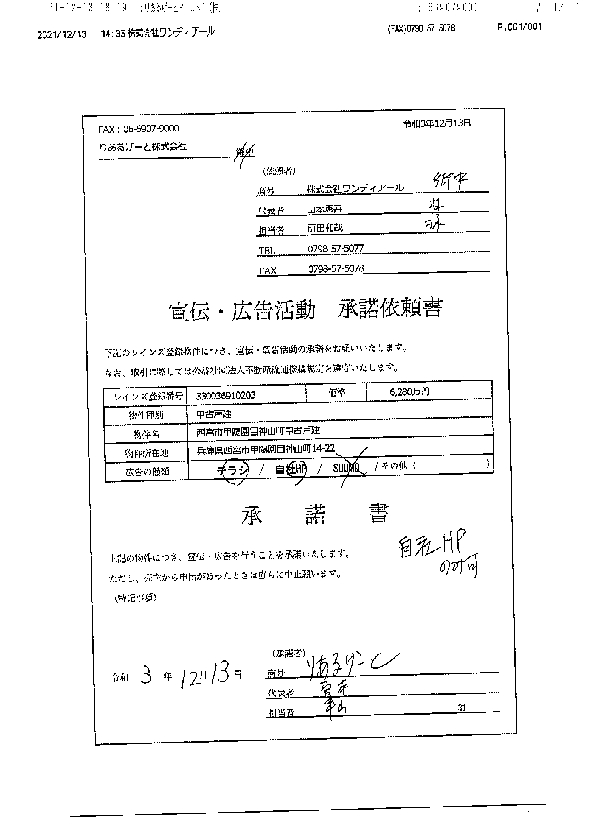 2021/12/13 14:33 株式会社ワンディアール (FAX)0798 57 5078 P.001/001
FAX：06-6907-9000 令和3年12月13日
りあるげーと株式会社
(依頼者)
商号 株式会社ワンディアール
代表者
担当者 町田和哉
TEL 0798-57-5077
FAX 0798-57-5078
宣伝・広告活動 承諾依頼書
下記のレインズ登録物件につき、宣伝・広告活動の承諾をお願いいたします。
なお、取引に際しては公益社団法人不動産流通機構規定を遵守いたします。
レインズ登録番号 価格 6,280万円
物件種別 中古戸建
物件名 西宮市甲陽園目神山町中古戸建
物件所在地 兵庫県西宮市甲陽園目神山町14-22
広告の種類 チラシ / 自社HP / SUUMO / その他 ( )
承諾書
上記の物件につき、宣伝・広告を行うことを承諾いたします。
自社HP
のみ可
ただし、売主から申出があったときは直ちに中止願います。
(特記事項)
(承諾者)
令和 3 年 12月13日
商号 りあるげーと
代表者
担当者 印